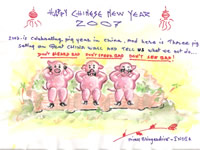 HAPPY CHINESE NEW YEAR
2007
2007 is celebrating pig year in China, and here is three pig
sitting on great China wall and tell us what we not do...
DON'T HEARD BAD DON'T SPEAK BAD DON'T SEE BAD
- INDIA